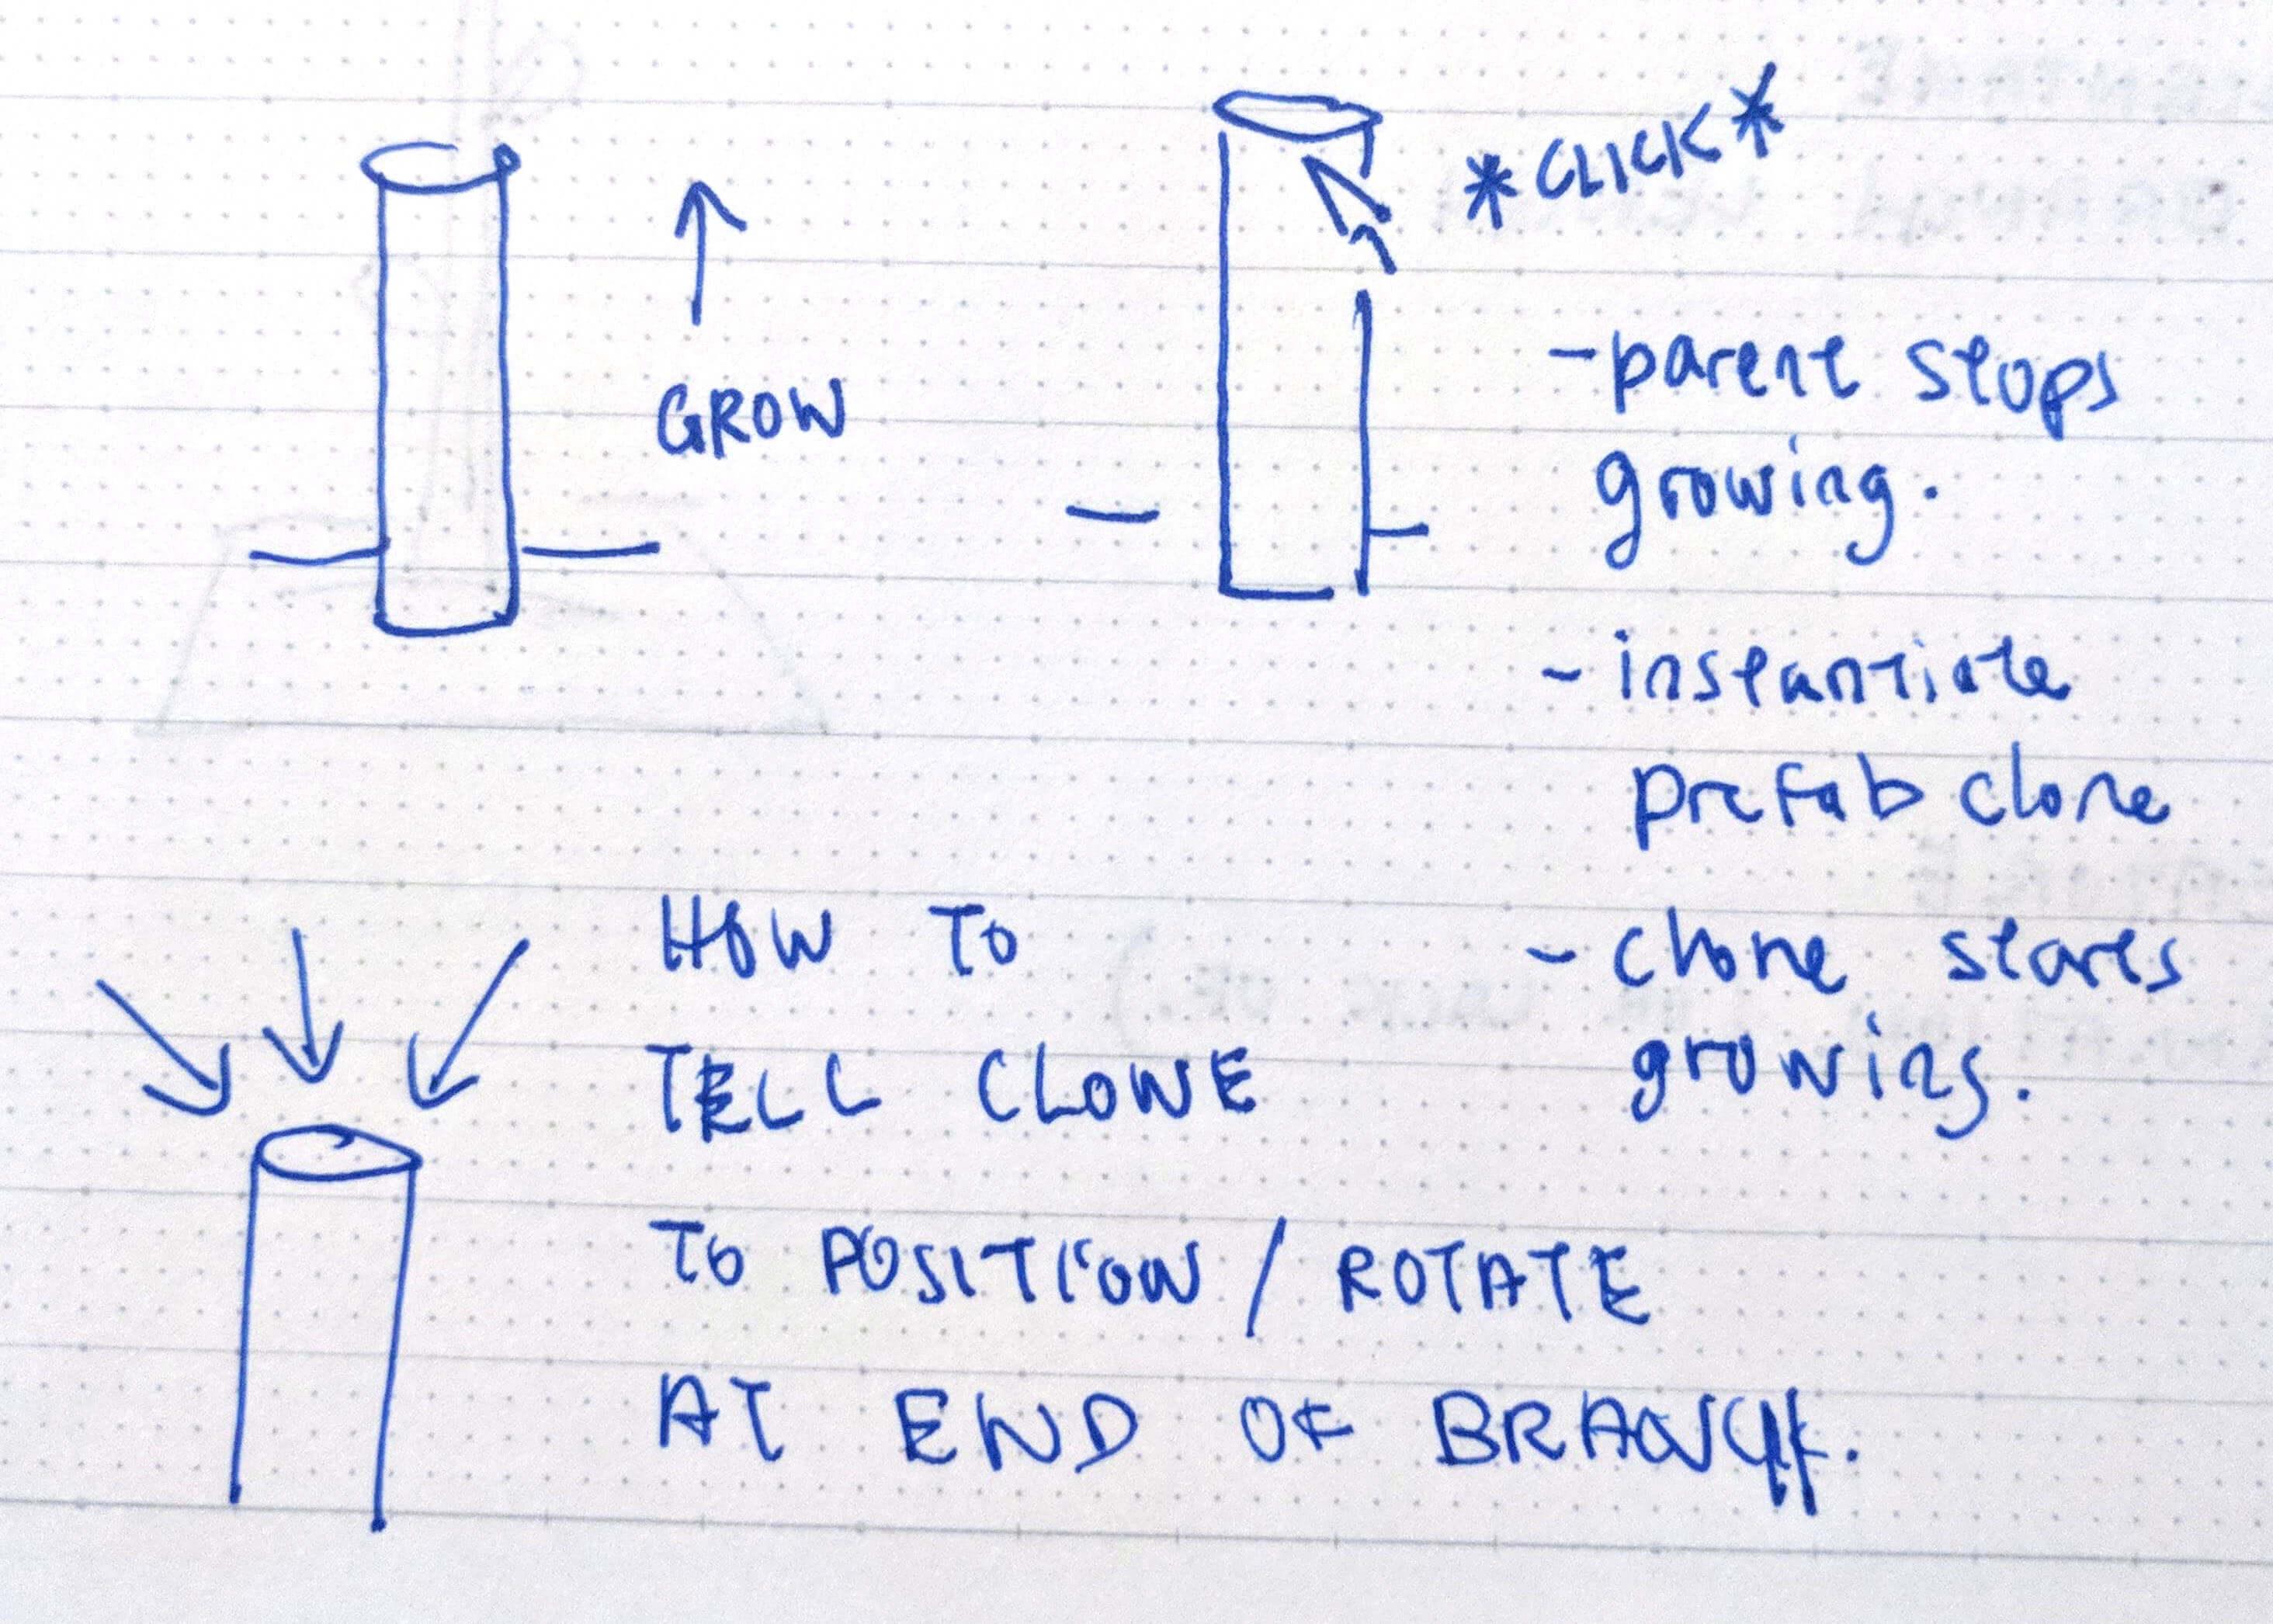 *CLICK*
GROW
- parent stops
growing.
- instantiate
prefab clone
- clone starts
growing.
HOW TO
TELL CLONE
TO POSITION / ROTATE
AT END OF BRANCH.